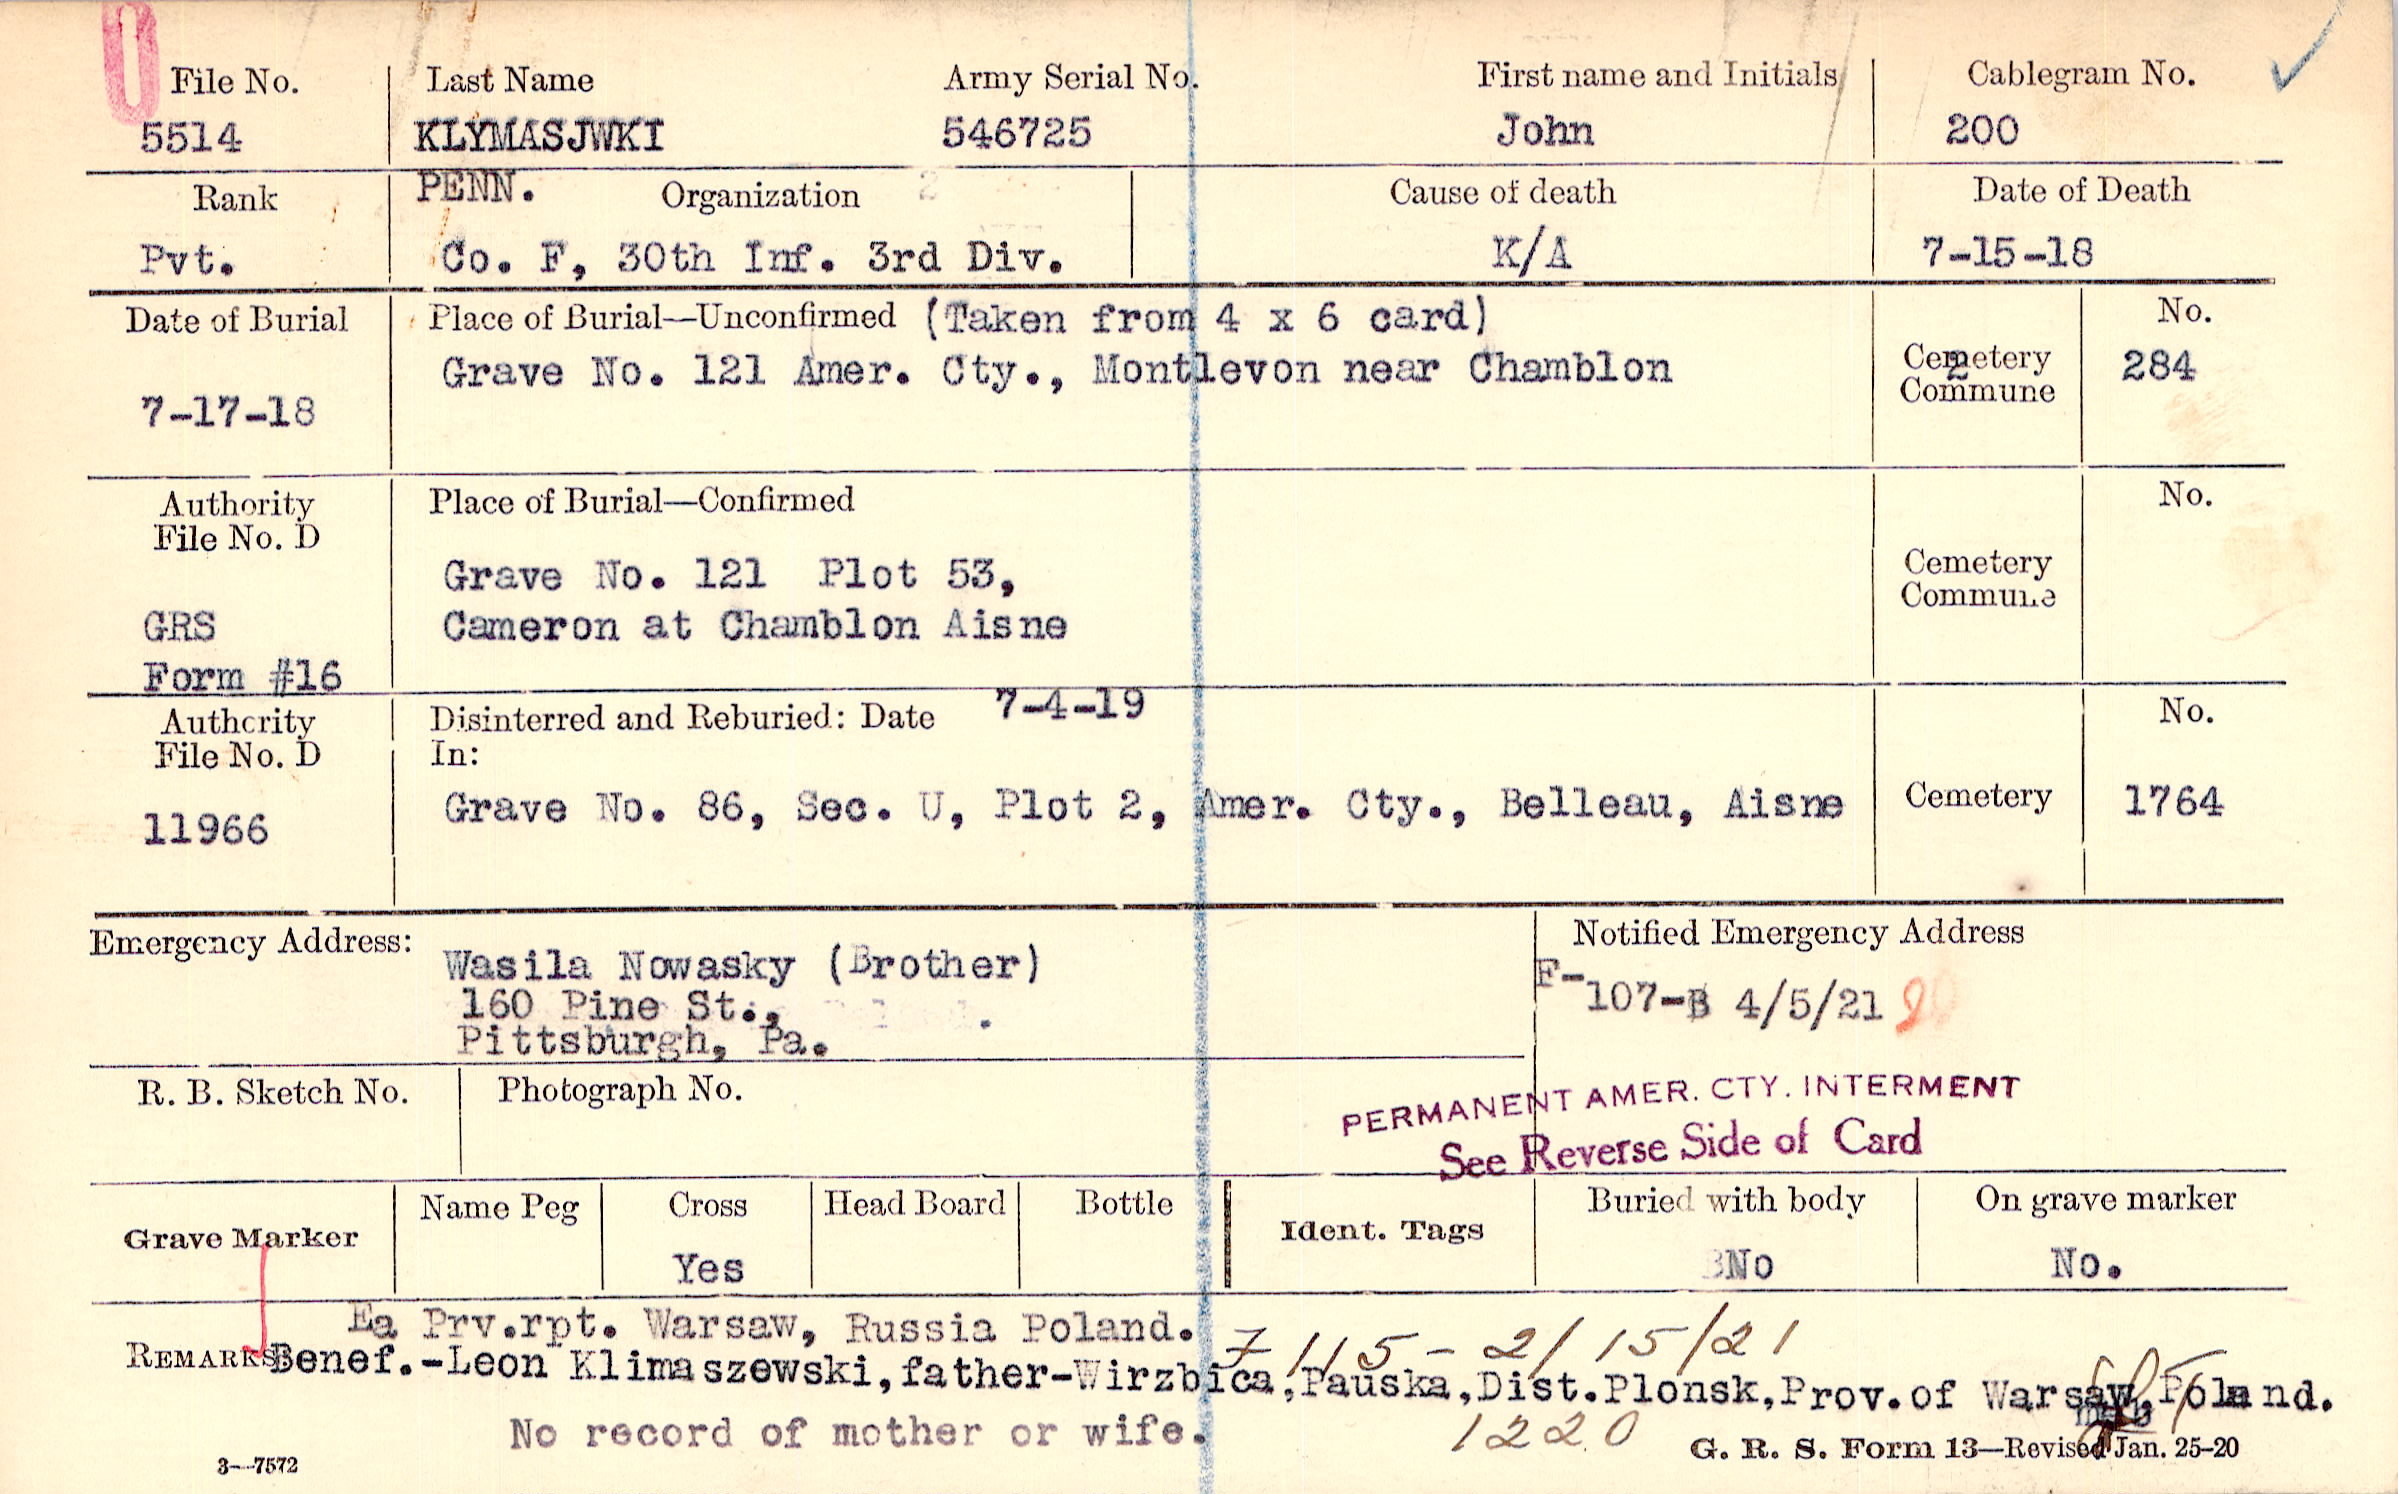 File No. Last Name Army Serial No. First name and Initials Cablegram No.
5514 KLYMASJWKI 546725 John 200
Rank PENN. Organization Cause of death Date of Death
Pvt. Co. F, 30th Inf. 3rd Div. K/A 7-15-18
Date of Burial Place of Burial—Unconfirmed (Taken from 4 x 6 card) No.
Grave No. 121 Amer. Cty., Montlevon near Chamblon Cemetery 2 284
Commune
7-17-18
Authority Place of Burial—Confirmed No.
File No. D
Grave No. 121 Plot 53, Cemetery
GRS Cameron at Chamblon Aisne Commune
Form #16
Authority Disinterred and Reburied: Date 7-4-19 No.
File No. D In:
11966 Grave No. 86, Sec. U, Plot 2, Amer. Cty., Belleau, Aisne Cemetery 1764
Emergency Address: Wasila Nowasky (Brother) Notified Emergency Address
160 Pine St., F-107-B 4/5/21
Pittsburgh, Pa.
R. B. Sketch No. Photograph No.
PERMANENT AMER. CTY. INTERMENT
See Reverse Side of Card
Grave Marker Name Peg Cross Head Board Bottle Ident. Tags Buried with body On grave marker
Yes No No.
Ea Prv.rpt. Warsaw, Russia Poland. 7115 - 2/15/21
REMARKS Benef.-Leon Klimaszewski,father-Wirzbica,Pauska,Dist.Plonsk,Prov.of Warsaw,Poland.
No record of mother or wife. 1220
3—7572 G. R. S. Form 13—Revised Jan. 25-20